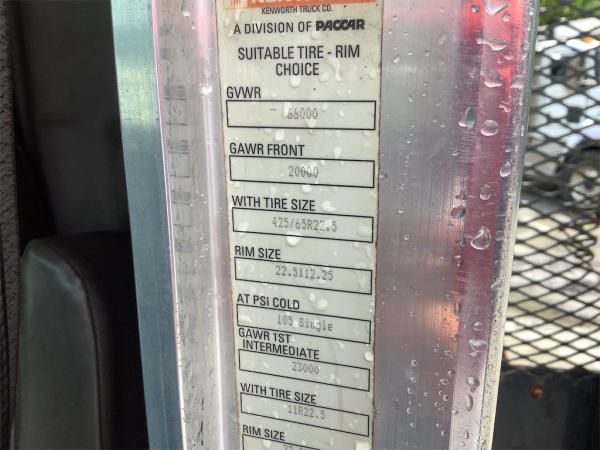 KENWORTH TRUCK CO.
A DIVISION OF PACCAR
SUITABLE TIRE - RIM
CHOICE
GVWR
66000
GAWR FRONT
20000
WITH TIRE SIZE
425/65R22.5
RIM SIZE
22.5X12.25
AT PSI COLD
105 Single
GAWR 1ST
INTERMEDIATE
23000
WITH TIRE SIZE
11R22.5
RIM SIZE